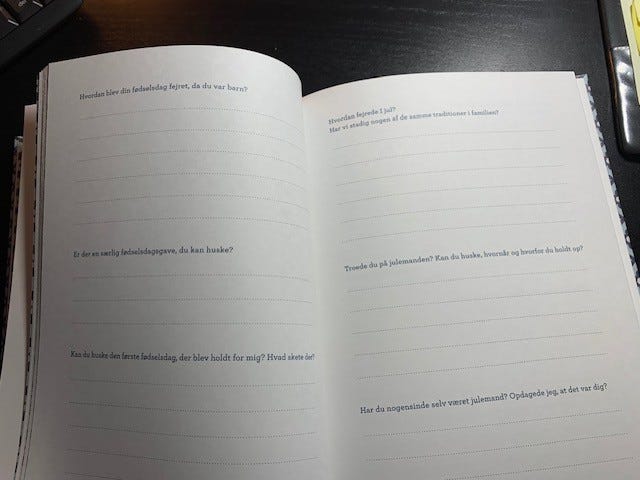 Hvordan blev din fødselsdag fejret, da du var barn?
Er der en særlig fødselsdagsgave, du kan huske?
Kan du huske den første fødselsdag, der blev holdt for mig? Hvad skete der?
Hvordan fejrede I jul?
Har vi stadig nogen af de samme traditioner i familien?
Troede du på julemanden? Kan du huske, hvornår og hvorfor du holdt op?
Har du nogensinde selv været julemand? Opdagede jeg, at det var dig?